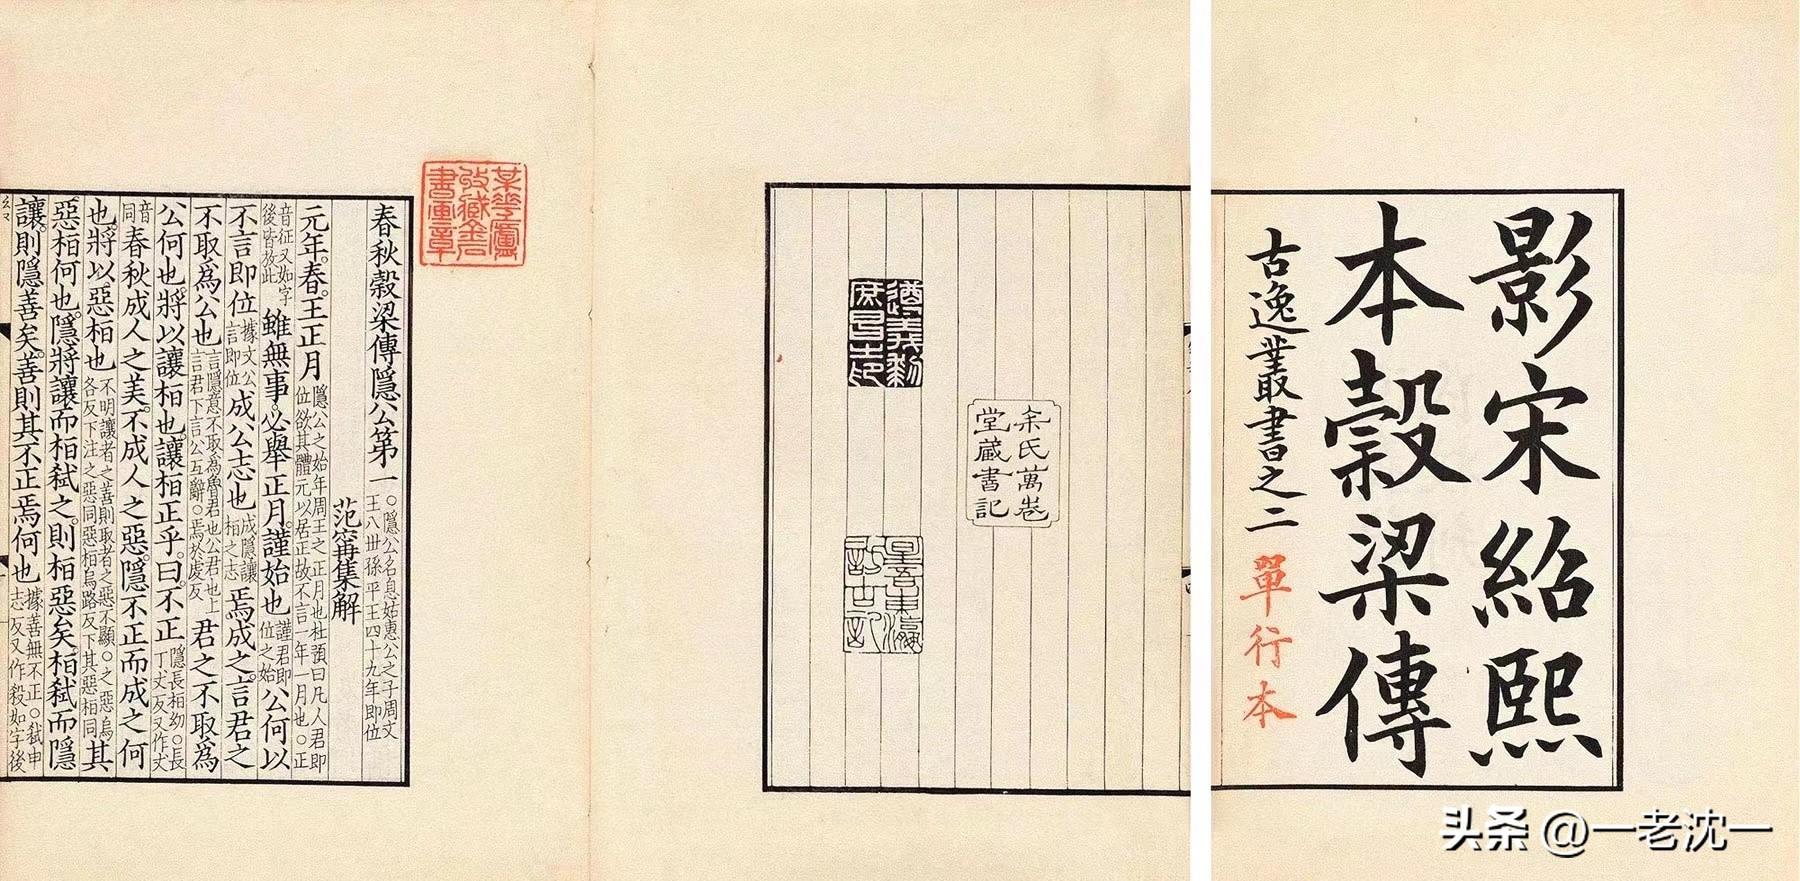 影宋紹熙
本穀梁傳
古逸叢書之二
單行本
遵義黎
庶昌之印
余氏萬卷
堂藏書記
星吾東瀛
訪古記
某華盦
收藏金石
書畫章
春秋穀梁傳隱公第一 ○隱公名息姑惠公之子周文王八丗孫平王四十九年即位
范甯集解
元年。春。王正月 隱公之始年周王之正月也杜預曰凡人君即位欲其體元以居正故不言一年一月也○正
音征又如字後皆放此 雖無事。必舉正月。謹始也 謹君即位之始 公何以
不言即位 據文公言即位 成公志也 成隱讓桓之志 焉成之。言君之
不取爲公也 言隱意不取爲魯君也公君也上言君下言公互辭○焉於虔反 君之不取爲
公何也。將以讓桓也。讓桓正乎。曰。不正 隱長桓幼○長丁丈反又作丈
音同 春秋成人之美。不成人之惡。隱不正而成之何
也。將以惡桓也 不明讓者之善則取者之惡不顯○之惡烏各反下注之惡同惡桓烏路反下其惡桓同 其
惡桓何也。隱將讓而桓弒之。則桓惡矣。桓弒而隱
讓。則隱善矣。善則其不正焉何也 據善無不正○弒申志反又作殺如字後
头条 @一老沈一